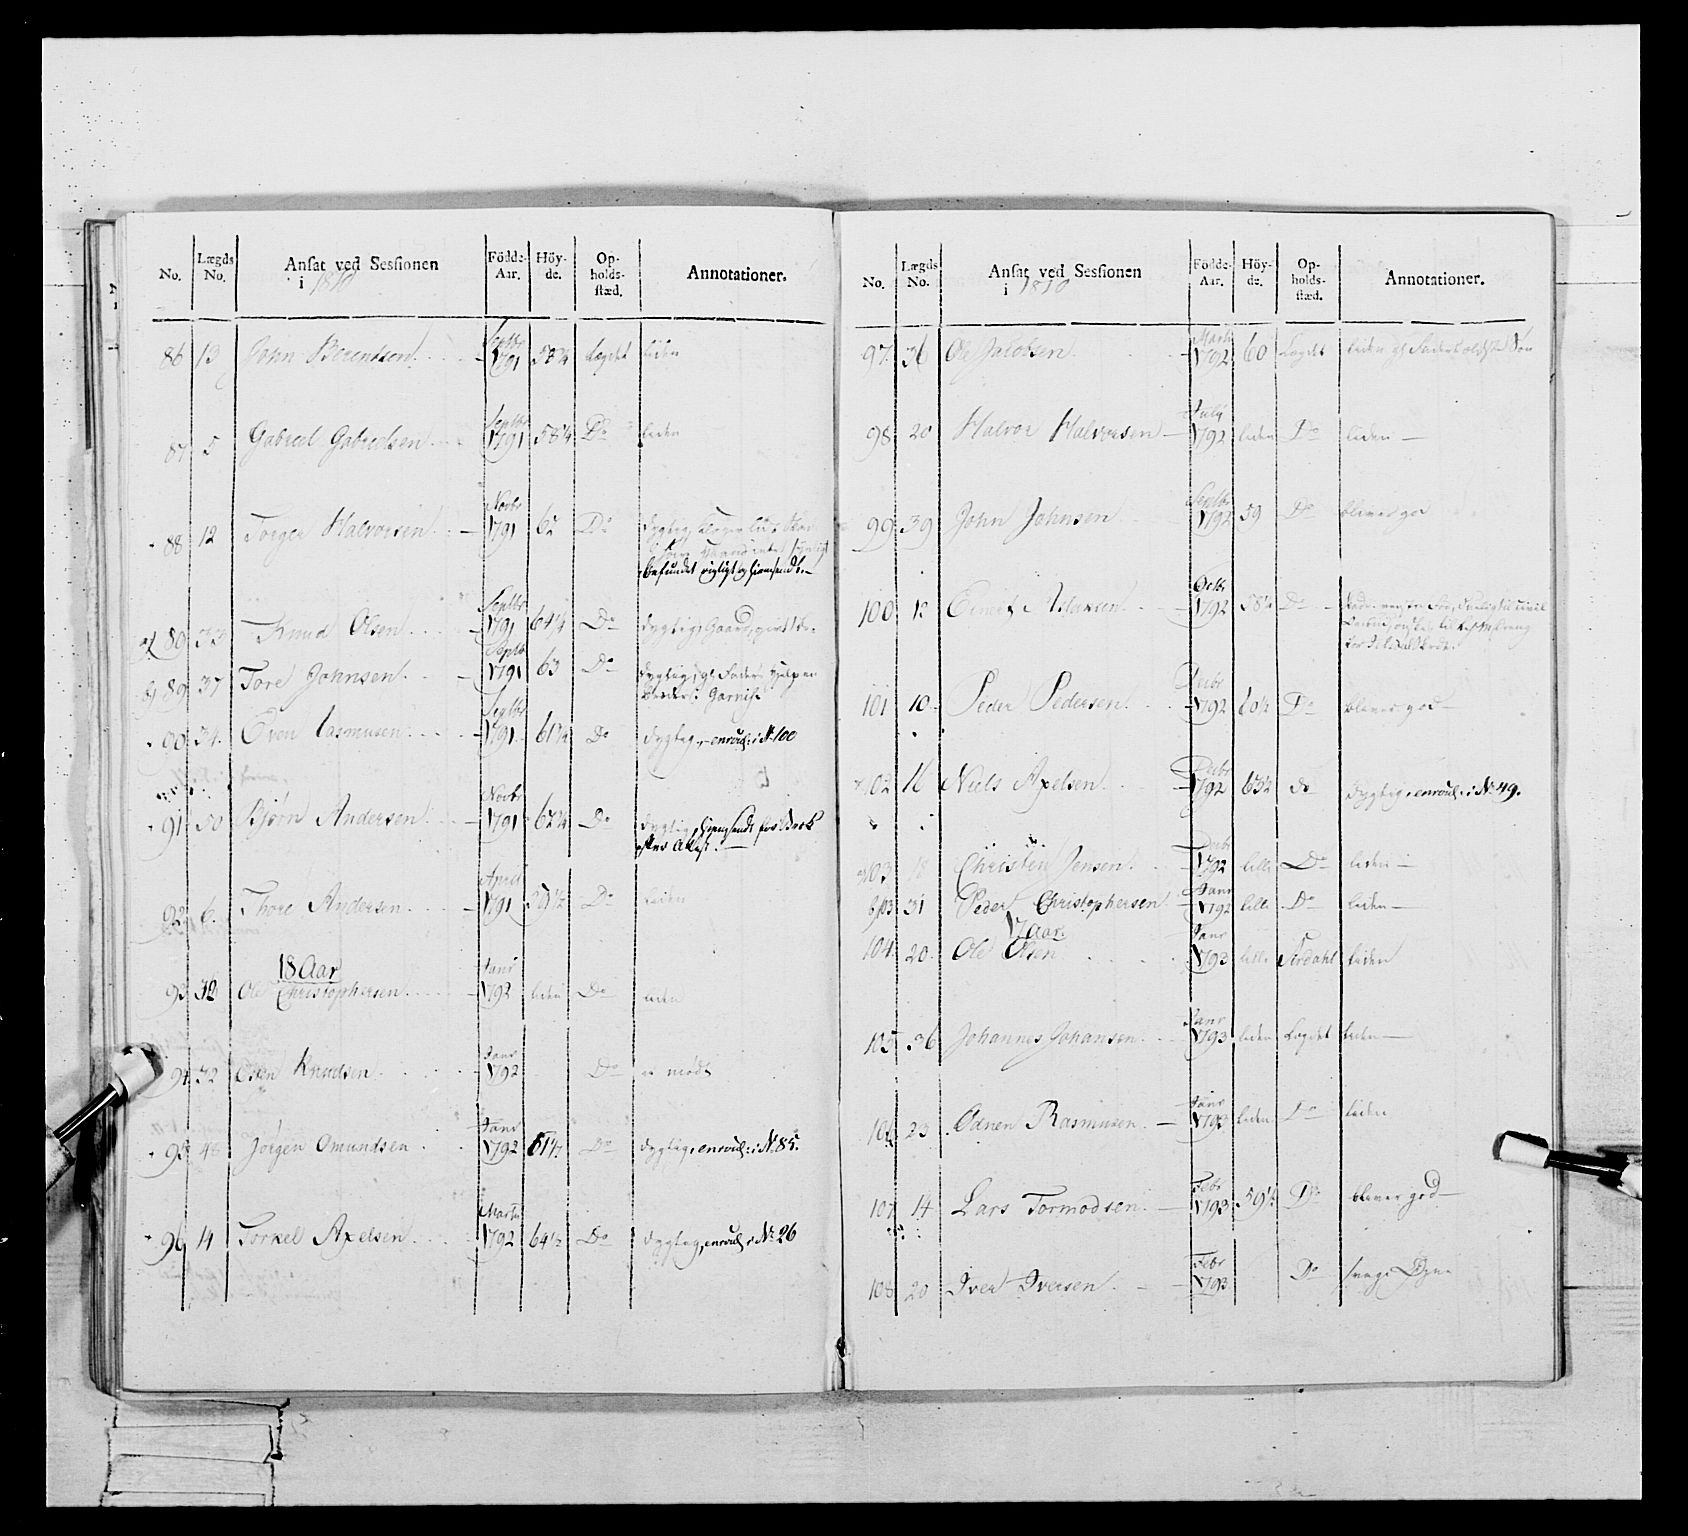 No. Lægds No. Ansat ved Sessionen i 1810 Födde-Aar. Höy-de. Op-holds-stæd. Annotationer.
86 13 John Berendsen Septbr 1791 58¾ Lægdet liden
87 5 Gabriel Gabrielsen Septbr 1791 58¼ Do liden
88 12 Torger Halvorsen Novbr 1791 62 Do dygtig,
befundet rigtigt og hiemsendt.
a/ 89 33 Knud Olsen Septbr 1791 64¼ Do dygtig, Gaard
b/ 89 37 Tore Johnsen Septbr 1791 63 Do dygtig, gl Fader
90 34 Even Rasmusen Septbr 1791 61¾ Do dygtig, enroul: i No 100
91 50 Bjørn Andersen Novbr 1791 62¼ Do dygtig, hiemsendt for Brok
efter Attest.
92 6 Thore Andersen April 1791 59½ Do liden
18 Aar
93 32 Ole Christophersen Janr 1792 liden Do liden
94 32 Osen Knudsen Janr 1792 Do ei mødt
95 48 Jørgen Omundsen Janr 1792 61½ Do dygtig, enroul: i No 85.
96 14 Torkel Axelsen Marti 1792 64½ Do dygtig, enroul: i No 26
No. Lægds No. Ansat ved Sessionen i 1810 Födde-Aar. Höy-de. Op-holds-stæd. Annotationer.
97 36 Ole Jacobsen Marti 1792 60 Lægdet liden gl Fader
98 20 Halvor Halvorsen July 1792 liden Do liden
99 39 John Johnsen Septbr 1792 59 Do bliver god
100 12 Octbr 1792 58¼ Do
101 10 Peder Pedersen Decbr 1792 60½ Do bliver god
102 16 Niels Axelsen Decbr 1792 63½ do dygtig, enroul: i No 49.
a/ 103 18 Christen Jensen Decbr 1792 lille Do liden
b/ 103 31 Peder Christophersen Janr 1792 lille Do liden
17 Aar.
104 20 Ole Olsen Janr 1793 lille Sirdahl liden
105 36 Johannes Johansen Janr 1793 liden Lægdet liden
106 23 Odnen Rasmusen Janr 1793 liden Do liden
107 14 Lars Tormodsen Febr 1793 59½ Do bliver god
108 20 Iver Iversen Febr 1793 Do svage Øyne